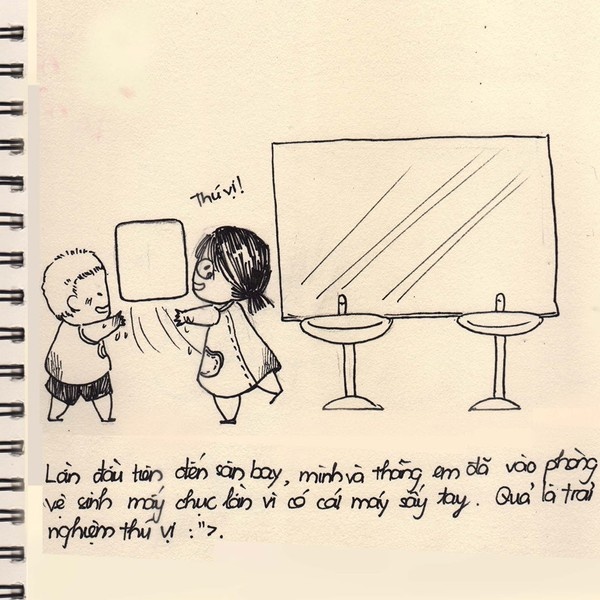 Thú vị!
Lần đầu tiên đến sân bay, mình và thằng em đã vào phòng
vệ sinh mấy chục lần vì có cái máy sấy tay. Quả là trải
nghiệm thú vị :">.